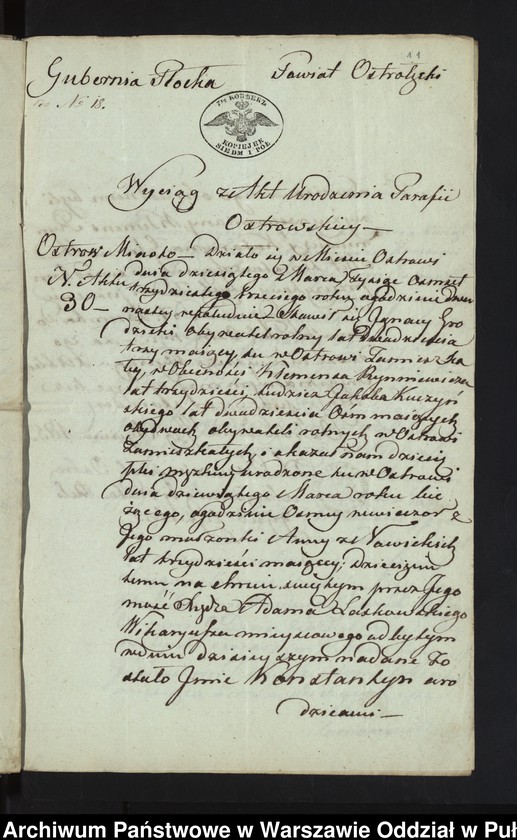 11
Gubernia Płocka Powiat Ostrołęcki
No 18.
7½ КОПѢЕКЪ
KOPIEJEK
SIEDM I PÓŁ
Wyciąg z Akt Urodzenia Parafii
Ostrowskiey —
Ostrow Miasto — Działo się w Mieście Ostrowi
N. Aktu dnia dziesiątego Marca Tysiąc Ośmset
30 — trzydziestego trzeciego roku, o godzinie
nastey w południe. Stawił się Ignacy Gro
dzicki Obywatel rolny lat Dwadzieścia
trzy maiący, tu w Ostrowi Zamieszka
ły, w Obecności Klemensa Ryniewicza
lat trzydzieści, tudzież Jakóba Kuczyń
skiego lat dwadzieścia Ośm maiących
obydwuch obywateli rolnych w Ostrowi
Zamieszkałych, i okazał nam dziecię
płci męzkiey urodzone tu w Ostrowi
dnia dziewiątego Marca roku bie
żącego, o godzinie Osmey wieczor z
Jego małżonki Anny z
lat trzydzieści maiącey; Dziecięciu
temu na chrzcie świętym przez Jego
mość Xiędza Adama Laskowskiego
Wikaryusza mieyscowego odbytym
w dniu dzisieyszym nadane zo
stało Imie Konstantyn a ro
dzicami —
Archiwum Państwowe w Warszawie Oddział w Puł